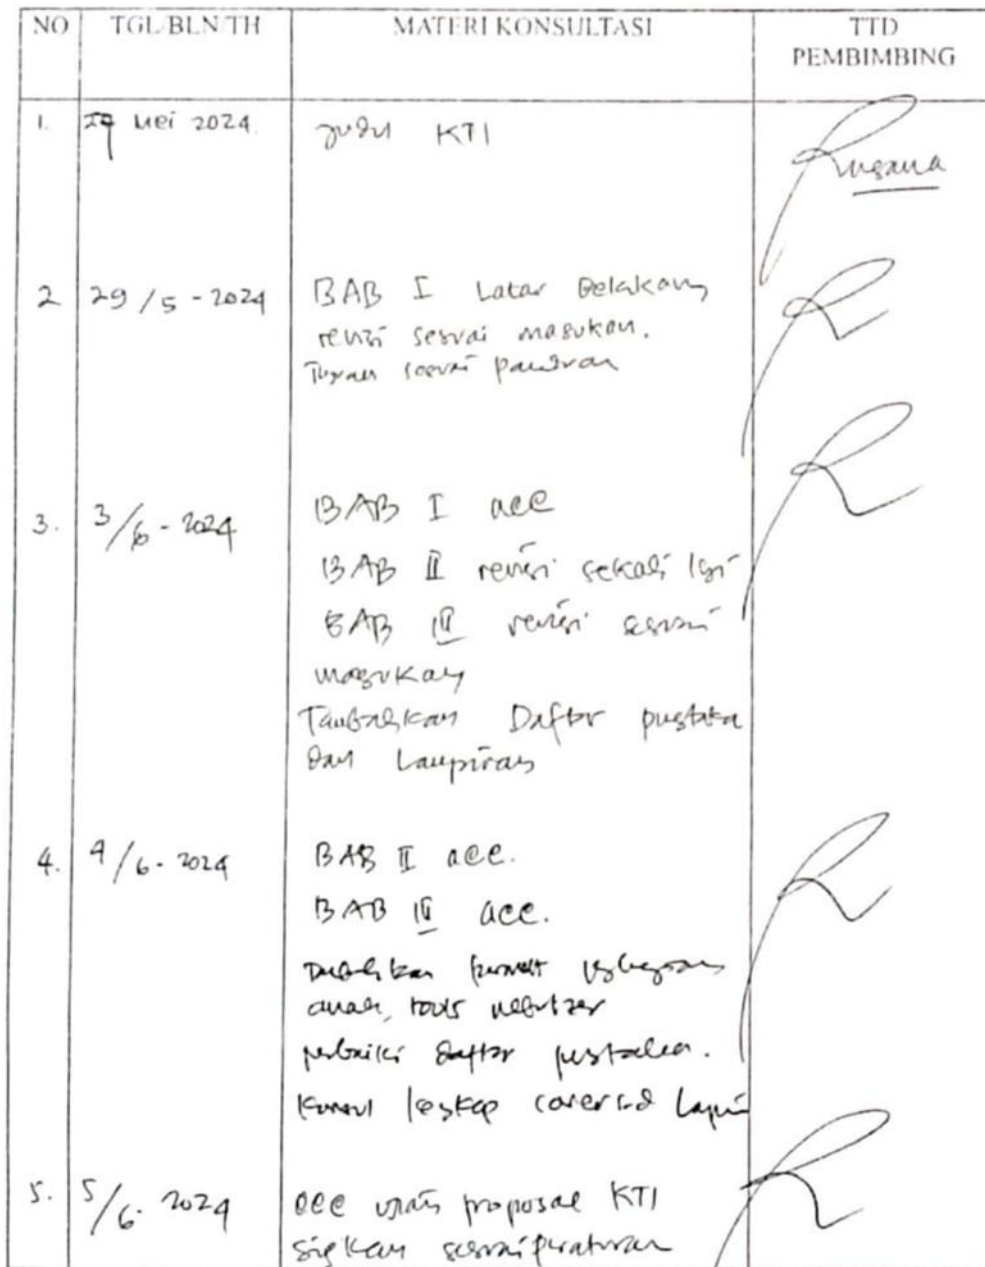 NO TGL/BLN/TH MATERI KONSULTASI TTD PEMBIMBING
1. Mei 2024. Judul KTI
2 29/5-2024 BAB I Latar Belakang
revisi sesuai masukan.
Tujuan sesuai panduan
3. 3/6-2024 BAB I acc
BAB II revisi sekali lgi
BAB III revisi sesuai
masukan
Tambahkan Daftar pustaka
dan Lampiran
4. 4/6-2024 BAB II acc.
BAB III acc.
anak, tools nebulizer
perbaiki daftar pustaka.
Konsul
5. 5/6-2024 acc ujian proposal KTI
sesuai peraturan